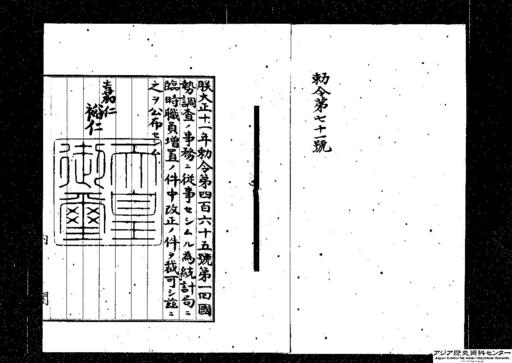 勅令第七十一號
朕大正十一年勅令第四百六十五號第一回國
勢調査ノ事務ニ從事セシムル為統計局ニ
臨時職員增置ノ件中改正ノ件ヲ裁可シ茲ニ
之ヲ公布セシム
嘉仁
裕仁
天皇
御璽
内閣
アジア歴史資料センター
Japan Center for Asian Historical Records